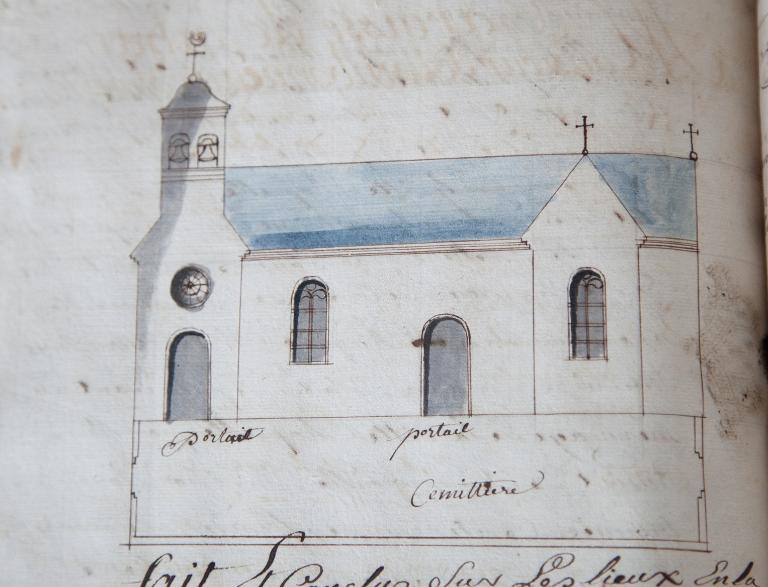 portail portail
Cemittiere
fait & Conclu Sur Les lieux En la